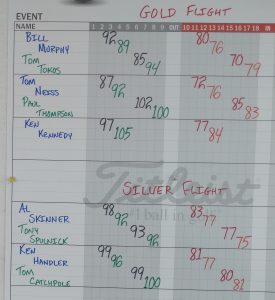 GOLD FLIGHT
EVENT
NAME 1 2 3 4 5 6 7 8 9 OUT 10 11 12 13 14 15 16 17 18 IN
BILL MORPHY 92 89 80 76
TOM TOKOS 85 94 70 79
TOM NEISS 87 92 72 76
PAUL THOMPSON 102 100 85 83
KEN KENNEDY 97 105 77 84
SILVER FLIGHT
Titleist
#1 ball in golf
AL SKINNER 98 92 83 77
TONY SPULNICK 93 92 77 75
KEN HANDLER 99 96 81 77
TOM CATCHPOLE 99 100 80 81